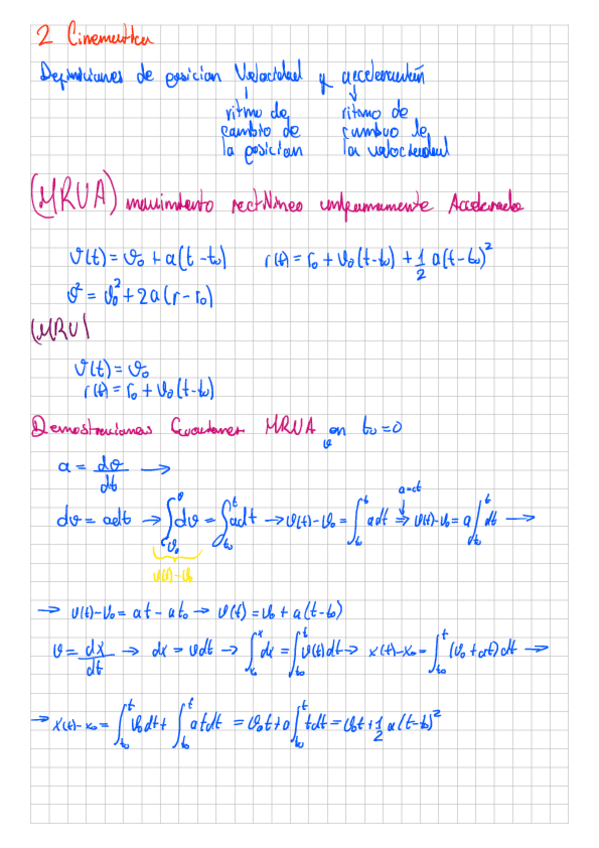 2 Cinematica
Definiciones de posicion Velocidad y acceleración
ritmo de ritmo de
cambio de cambio de
la posicion la velocidad
(MRUA) movimiento rectilineo uniformemente Accelerado
v(t) = v₀ + a(t - t₀) r(t) = r₀ + v₀(t-t₀) + 1/2 a(t-t₀)²
v² = v₀² + 2a(r - r₀)
(MRU)
v(t) = v₀
r(t) = r₀ + v₀(t-t₀)
Demostraciones Ecuaciones MRUA en t₀=0
a = dv/dt →
dv = adt → ∫_{v₀}^{v} dv = ∫_{t₀}^{t} adt → v(t)-v₀ = ∫_{t₀}^{t} adt ⇒ v(t)-v₀ = a∫_{t₀}^{t} dt →
a=ct
v(t)-v₀
→ v(t)-v₀ = at - at₀ → v(t) = v₀ + a(t-t₀)
v = dx/dt → dx = vdt → ∫_{x₀}^{x} dx = ∫_{t₀}^{t} v(t)dt → x(t)-x₀ = ∫_{t₀}^{t} (v₀ + at)dt →
→ x(t)-x₀ = ∫_{t₀}^{t} v₀dt + ∫_{t₀}^{t} atdt = v₀t + a∫_{t₀}^{t} tdt = v₀t + 1/2 a(t-t₀)²